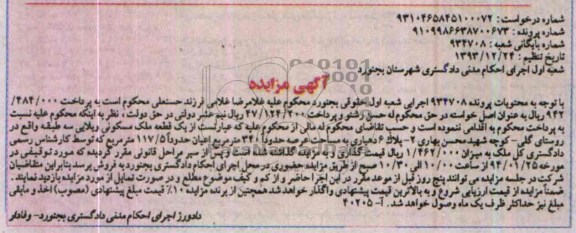 شماره درخواست : ۹۳۱۰۴۶۵۸۴۵۱۰۰۰۷۲
شماره پرونده : ۹۱۰۹۹۸۶۶۳۸۷۰۰۶۷۳
شماره بایگانی شعبه : ۹۳۴۷۰۸
تاریخ تنظیم : ۱۳۹۳/۱۲/۲۴
شعبه اول اجرای احکام مدنی دادگستری شهرستان بجنورد
آگهی مزایده
با توجه به محتویات پرونده ۹۳۴۷۰۸ اجرایی شعبه اول حقوقی بجنورد محکوم علیه غلامرضا غلامی فرزند حسنعلی محکوم است به پرداخت ۴۸۴/۰۰۰/
۹۶۲ ریال به عنوان اصل خواسته در حق محکوم له حسن زشتو و پرداخت ۴۷/۱۲۴/۲۰۰ ریال نیم عشر دولتی در حق دولت ، نظر به اینکه محکوم علیه نسبت
به پرداخت محکوم به اقدامی ننموده است و حسب تقاضای محکوم له مالی از محکوم علیه که عبارتست از یک قطعه ملک مسکونی ویلایی سه طبقه واقع در
روستای گلی- کوچه شهید محسن بهاری ۲- پلاک ۶ دهیاری به مساحت عرصه حدوداً ۳۴۰ مترمربع اعیان حدوداً ۱۱۷/۵ مترمربع که توسط کارشناس رسمی
دادگستری کل ملک به میزان ۱/۴۶۲/۰۰۰/۰۰۰ ریال قیمت گذاری و به مزایده گذاشته شده است و پس از سیر مراحل قانونی مقرر گردیده که مورد توقیفی در
مورخه ۹۴/۰۱/۲۵ از ساعت ۱۰/۰۰ الی ۱۰/۳۰ صبح از طریق مزایده حضوری در محل اجرای احکام دادگستری بجنورد به فروش برسد بنابراین متقاضیان
شرکت در جلسه مزایده می توانند پنج روز قبل از موعد مقرر در این اجرا حاضر و از کم و کیف موضوع مطلع و در صورت تمایل از مورد مزایده بازدید نمایند .
ضمناً مزایده از قیمت ارزیابی شروع و به بالاترین قیمت پیشنهادی واگذار خواهد شد همچنین از برنده مزایده ۱۰٪ قیمت مبلغ پیشنهادی (مصوب) اخذ و مابقی
مبلغ نیز حداکثر ظرف یک ماه وصول خواهد شد. آ- ۴۰۲۰۵
دادورز اجرای احکام مدنی دادگستری بجنورد- وفادار